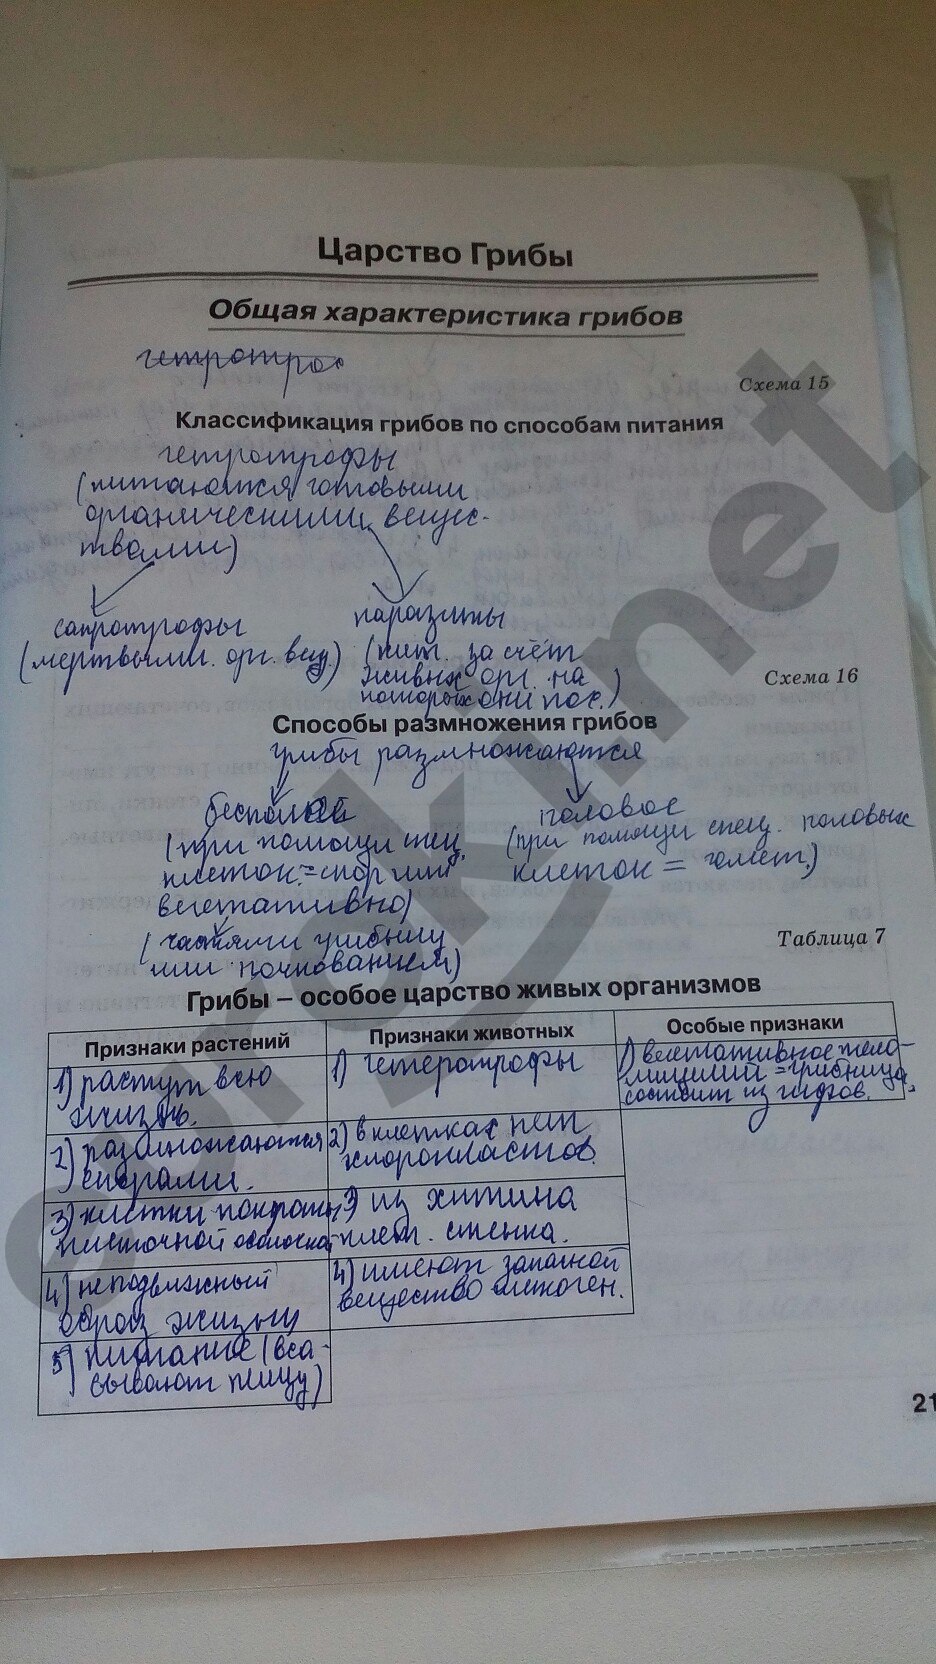 Царство Грибы
Общая характеристика грибов
гетротроф
Схема 15
Классификация грибов по способам питания
гетротрофы
(питаются готовыми
органическими вещес-
твами)
сапротрофы
(мертвыми. орг. вещ.)
паразиты
(пит. за счёт
живых орг. на
которых они пос.)
Схема 16
Способы размножения грибов
грибы размножаются
бесполое
(при помощи спец.
клеток = спор или
вегетативно)
(частями грибницы
или почкованием)
половое
(при помощи спец. половых
клеток = гамет.)
Таблица 7
Грибы – особое царство живых организмов
Признаки растений
Признаки животных
Особые признаки
1) растут всю
жизнь.
1) гетеротрофы
1) вегетативное тело-
мицелий = грибница,
состоит из гифов.
2) размножаются
спорами.
2) в клетках нет
хлоропластов.
3) клетки покрыты
клеточной оболочкой
3) из хитина
клет. стенка.
4) неподвижный
образ жизни
4) имеют запасной
вещество гликоген.
5) питание (вса-
сывают пищу)
21
eproki.net